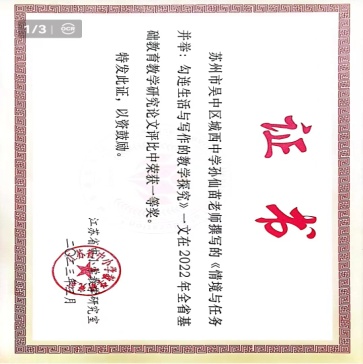 1/3
证书
苏州市吴中区城西中学孙仙苗老师撰写的《情境与任务
并举：勾连生活与写作的教学探究》一文在2022年全省基
础教育教学研究论文评比中荣获一等奖。
特发此证，以资鼓励。
江苏省中小学教学研究室